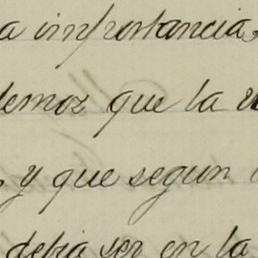 a importancia,
demoz que la
y que segun
debia ser en la